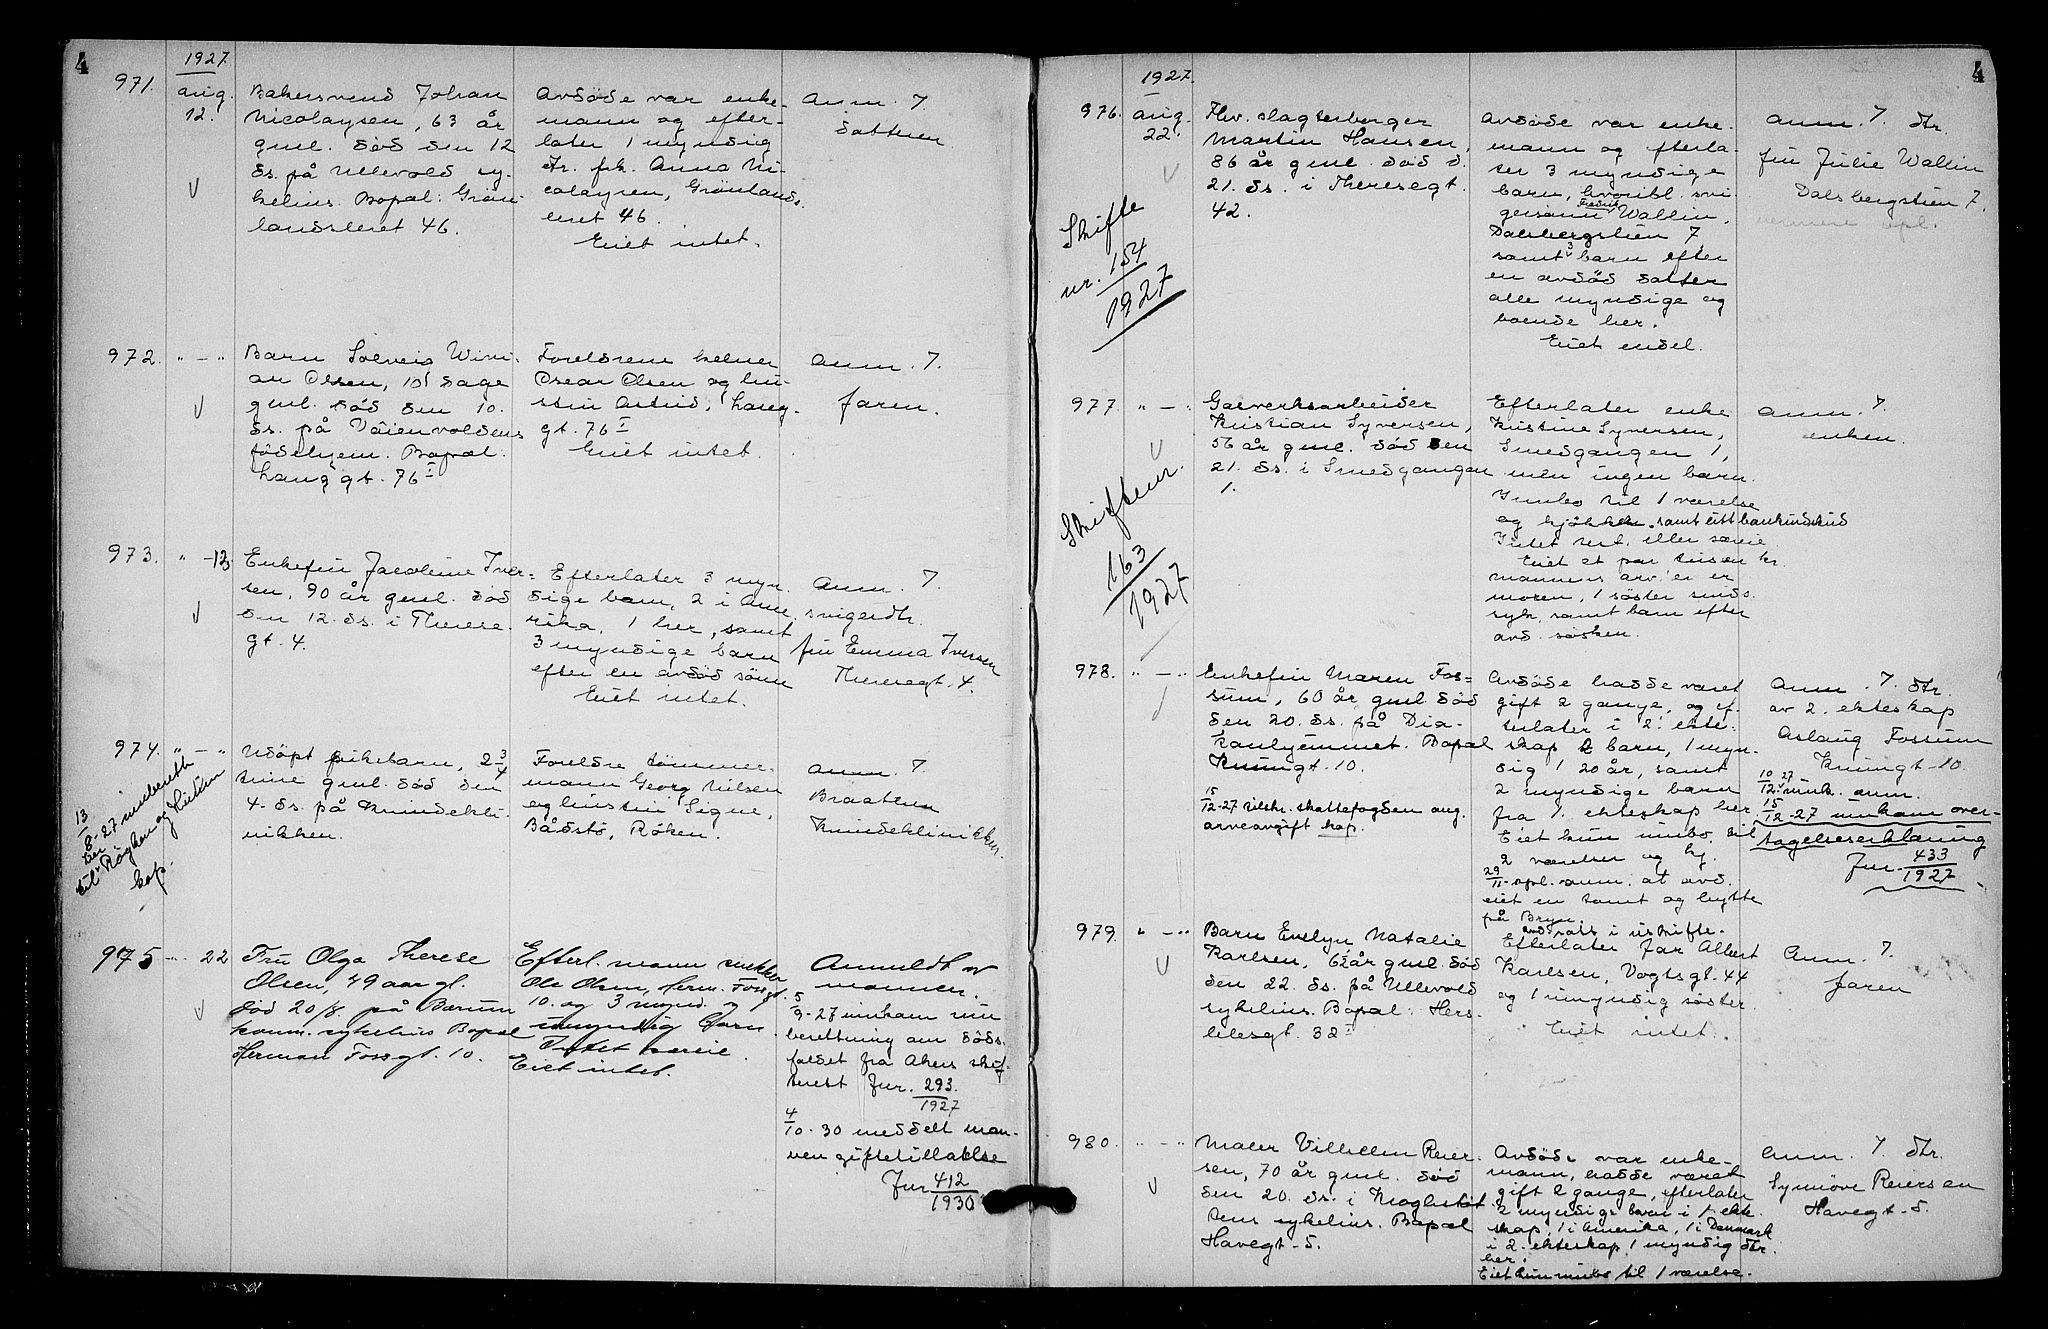 4
1927.
971.
aug.
12.
Bakersvend Johan
Nicolaysen, 63 år
gml. död den 12
ds. på Ullevold sy-
kehus. Bopæl: Grön-
landsleret 46.
Avdöde var enke-
mann og efter-
later 1 myndig
dtr. frk. Anna Ni-
colaysen, Grönlands-
leret 46.
Eiet intet.
Anm. 7.
datteren
972. " — "
Barn Solveig Wivi-
an Olsen, 10 dage
gml. död den 10.
ds. på Vöienvoldens
födehjem. Bopæl.
Langgt. 76 I
Foreldrene kelner
Oscar Olsen og hu-
stru Astrid, Lang-
gt. 76 I
Eiet intet.
Anm. 7.
faren.
973. " — 13.
Enkefru Jacobine Iver-
sen, 90 år gml. död
den 12. ds. i Therese-
gt. 4.
Efterlater 3 myn-
dige barn, 2 i Ame-
rika, 1 her, samt
3 myndige barn
efter en avdöd sönn
Eiet intet.
Anm. 7.
svigerdtr.
fru Emma Iversen
Theresegt. 4.
974. " — "
Udöpt pikebarn, 2 3/4
time gml. död den
4. ds. på Kvindekli-
nikken.
Foreldre tömmer-
mann Georg Nilsen
og hustru Signe,
Bådstö, Röken.
Anm. 7.
Braathen
Kvindeklinikken.
13/8-27 innberettn.
til Röyken og Hurum
975 — 22
Fru Olga Therese
Olsen, 49 aar gl.
död 20/8 på Bærum
komm. sykehus Bopæl
Herman Fossgt. 10.
Efterl. mann snekker
Ole Olsen, Herm. Fossgt.
10. og 3 mynd. og
umyndig barn.
Intet særeie.
Eiet intet.
Anmeldt av
mannen.
5/9-27 innkom inn
beretning om döds-
faldet fra Akers skif-
terett Jnr. 293/1927
4/10-30 meddelt man-
nen giftetillatelse
Jnr 412/1930
4
1927.
976. aug.
22.
Fhv. slagterborger
Martin Hansen,
86 år gml. död d.
21. ds. i Theresegt.
42.
Skifte
nr. 154/1927
Avdöde var enke-
mann og efterla-
ter 3 myndige
barn, hvoribl. svi-
gersönn Fredrik Wallin,
Dalsbergstien 7,
samt 3 barn efter
en avdöd datter
alle myndige og
boende her.
Eiet endel.
Anm. 7. dtr.
fru Julie Wallin
Dalsbergstien 7.
977. " — "
Gasverksarbeider
Kristian Syversen,
56 år gml. död den
21. ds. i Smedgangen
1.
Skiftenr.
163/1927
Efterlater enke
Kristine Syversen,
Smedgangen 1,
men ingen barn.
Innbo til 1 værelse
og kjökken samt litt bankinnskud
Intet test. eller særeie
Eiet et par tusen kr.
mannens arv. er er
moren, 1 söster sinds-
syk, samt barn efter
avd. sösken.
Anm. 7.
enken.
978. " — "
Enkefru Maren Fos-
sum, 60 år gml död
den 20. ds. på Dia-
konhjemmet. Bopæl
Knuingt. 10.
15/12-27 tilskr. skattefogden ang.
arveavgift kap.
Avdöde hadde været
gift 2 gange, og ef-
terlater i 2. ekte-
skap 2 barn, 1 myn-
dig 1 20 år, samt
2 myndige barn
fra 1. ekteskap her
Eiet kun innbo til
2 værelser og kj.
29/11- opl. anm. at avd.
eiet en tomt og hytte
på Bryn.
avd satt i uskifte.
Anm. 7. dtr.
av 2. ekteskap
Aslaug Fossum
Knuingt. 10
10/12-27 mnk. anm.
15/12-27 innkom over-
tagelseserklæring
Jnr. 433/1927
979. " — "
Barn Evelyn Natalie
Karlsen, 6½ år gml. död
den 22. ds. på Ullevold
sykehus. Bopæl: Hers-
lebsgt. 32 I
Efterlater far Albert
Karlsen, Vogtsgt. 44
og 1 umyndig söster.
Eiet intet.
Anm. 7.
faren
980. " — "
Maler Vilhelm Reier-
sen, 70 år gml. död
den 20. ds. i Krohgstöt-
tens sykehus. Bopæl
Havegt. 5.
Avdöde var enke-
mann, hadde været
gift 2 gange, efterlater
2 myndige barn i 1. ekte-
skap, 1 i Amerika, 1 i Denmark
i 2. ekteskap 1 myndig dtr.
her.
Eiet kun innbo til 1 værelse.
Anm. 7. dtr.
Synnöve Reiersen
Havegt. 5.